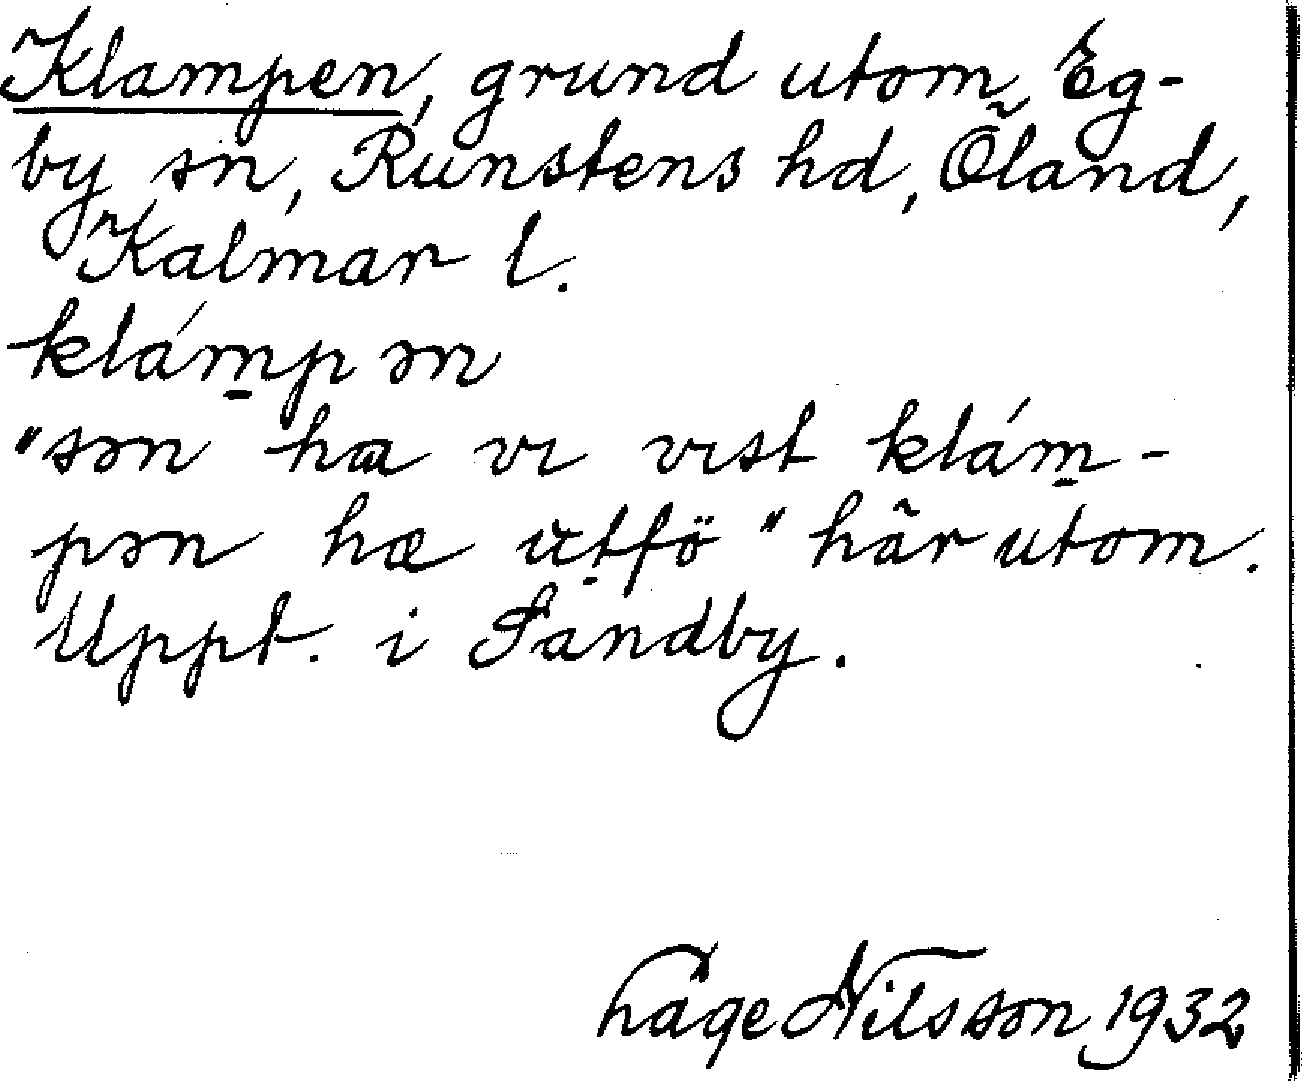 Klampen, grund utom Eg-
by sn, Runstens hd, Öland,
Kalmar l.
klám̱pən
"sən ha vɩ vɩst klám̱-
pən hæ ut̠fö" här utom.
Uppt. i Sandby.
Åge Nilsson 1932